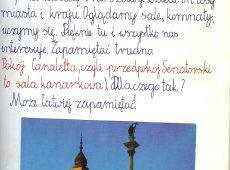 miasta i kraju. Oglądamy sale, komnaty,
uczymy się. Pięknie tu i wszystko nas
interesuje. Zapamiętać trudna
Pokój Canaletta, czyli przedpokój Senatorski
to sala kanarkowa! Dlaczego tak?
Może łatwiej zapamiętać